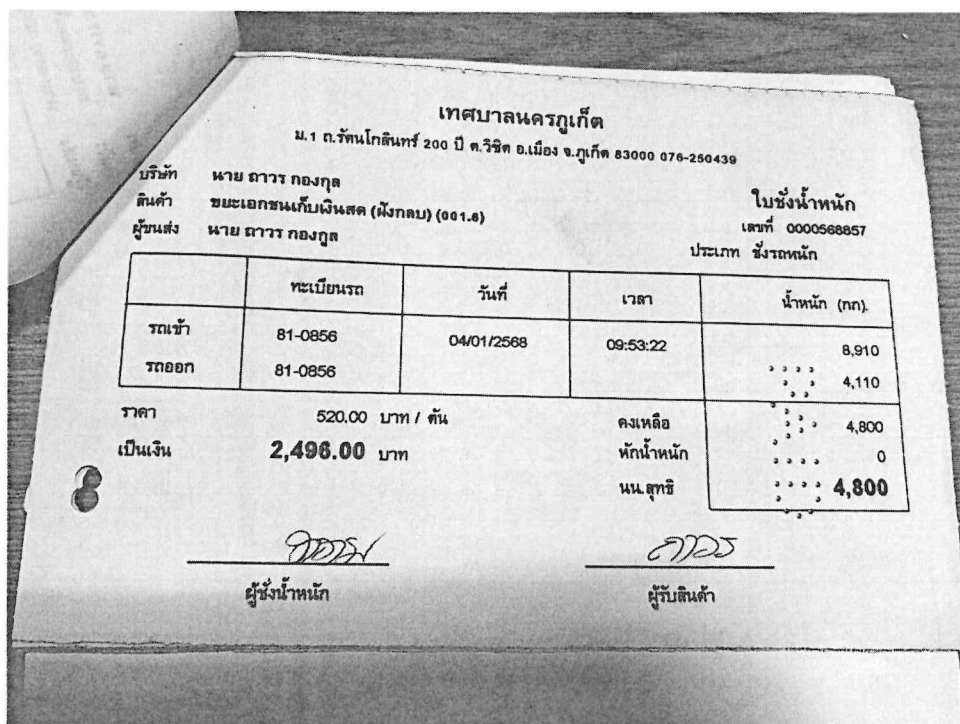 เทศบาลนครภูเก็ต
ม.1 ถ.รัตนโกสินทร์ 200 ปี ต.วิชิต อ.เมือง จ.ภูเก็ต 83000 076-250439
บริษัท นาย ถาวร กองกุล
สินค้า ขยะเอกชนเก็บเงินสด (ฝังกลบ) (001.6)
ผู้ขนส่ง นาย ถาวร กองกุล
ใบชั่งน้ำหนัก
เลขที่ 0000568857
ประเภท ชั่งรถหนัก
ทะเบียนรถ วันที่ เวลา น้ำหนัก (กก).
รถเข้า 81-0856 04/01/2568 09:53:22 8,910
รถออก 81-0856 4,110
ราคา 520.00 บาท / ตัน คงเหลือ 4,800
เป็นเงิน 2,496.00 บาท หักน้ำหนัก 0
นน.สุทธิ 4,800
ถาวร
ผู้ชั่งน้ำหนัก ผู้รับสินค้า